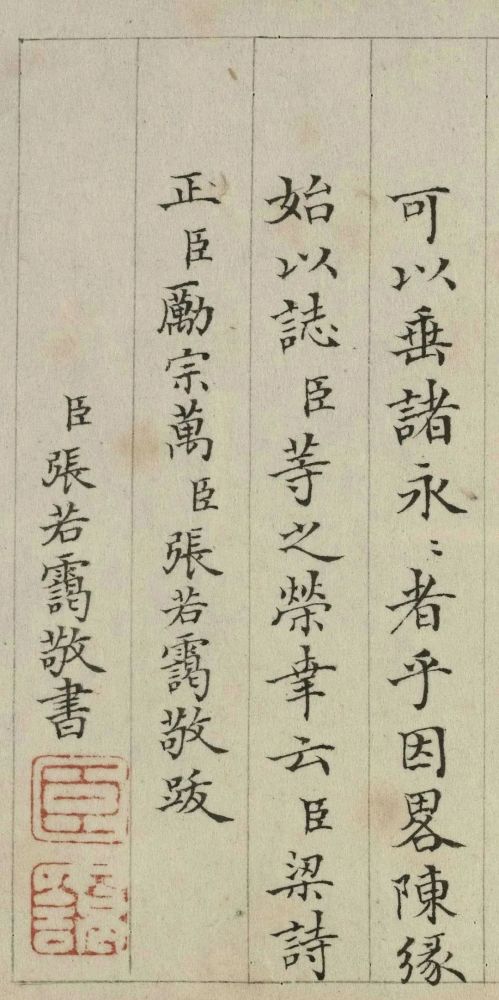 可以垂諸永〻者乎因畧陳緣
始以誌臣等之榮幸云臣梁詩
正臣勵宗萬臣張若靄敬跋
臣張若靄敬書
臣